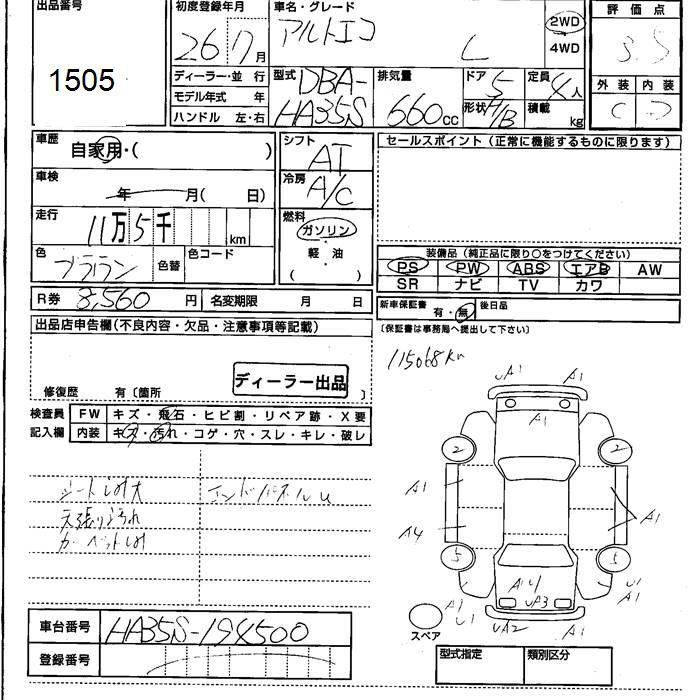 出品番号 初度登録年月 車名・グレード 評価点
1505 26 7月 アルトエコ L 2WD 3.5
4WD
ディーラー・並行 型式 DBA- 排気量 ドア 5 定員 4人 外装 内装
モデル年式 年 HA35S 660cc 形状 H/B 積載 kg C D
ハンドル 左・右
車歴 自家用・( ) シフト AT セールスポイント(正常に機能するものに限ります)
車検 年 月( 日) 冷房 A/C
走行 11万5千 km 燃料 ガソリン
色 ブラウン 色替 色コード 軽油 装備品(純正品に限り○をつけてください)
( ・ ) PS PW ABS エアB AW
SR ナビ TV カワ
R券 8,560円 名変期限 月 日 新車保証書 有・無 後日品
出品店申告欄(不良内容・欠品・注意事項等記載) (保証書は事務局へ提出して下さい)
115068km
ディーラー出品
修復歴 有〔箇所 〕
検査員 FW キズ・飛石・ヒビ割・リペア跡・X要
記入欄 内装 キズ・汚れ・コゲ・穴・スレ・キレ・破レ
UA1 A1
A1
2 2
シート 大 エンドパネルU A1
天張り汚れ A4 A1
カーペット
5 5
A1 U1 UA3 U1 A1
A1 U1 UA2 A1
スペア
車台番号 HA35S-194500
登録番号 型式指定 類別区分